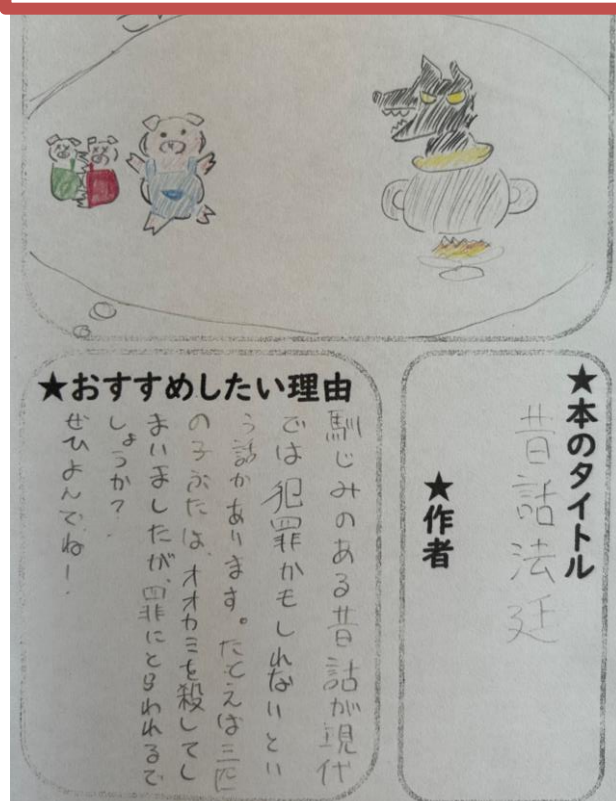 ★本のタイトル
昔話法廷
★作者
★おすすめしたい理由
馴じみのある昔話が現代
では犯罪かもしれないとい
う話があります。たとえば三匹
の子ぶたは、オオカミを殺してし
まいましたが、罪にとらわれるで
しょうか？
ぜひよんでね！